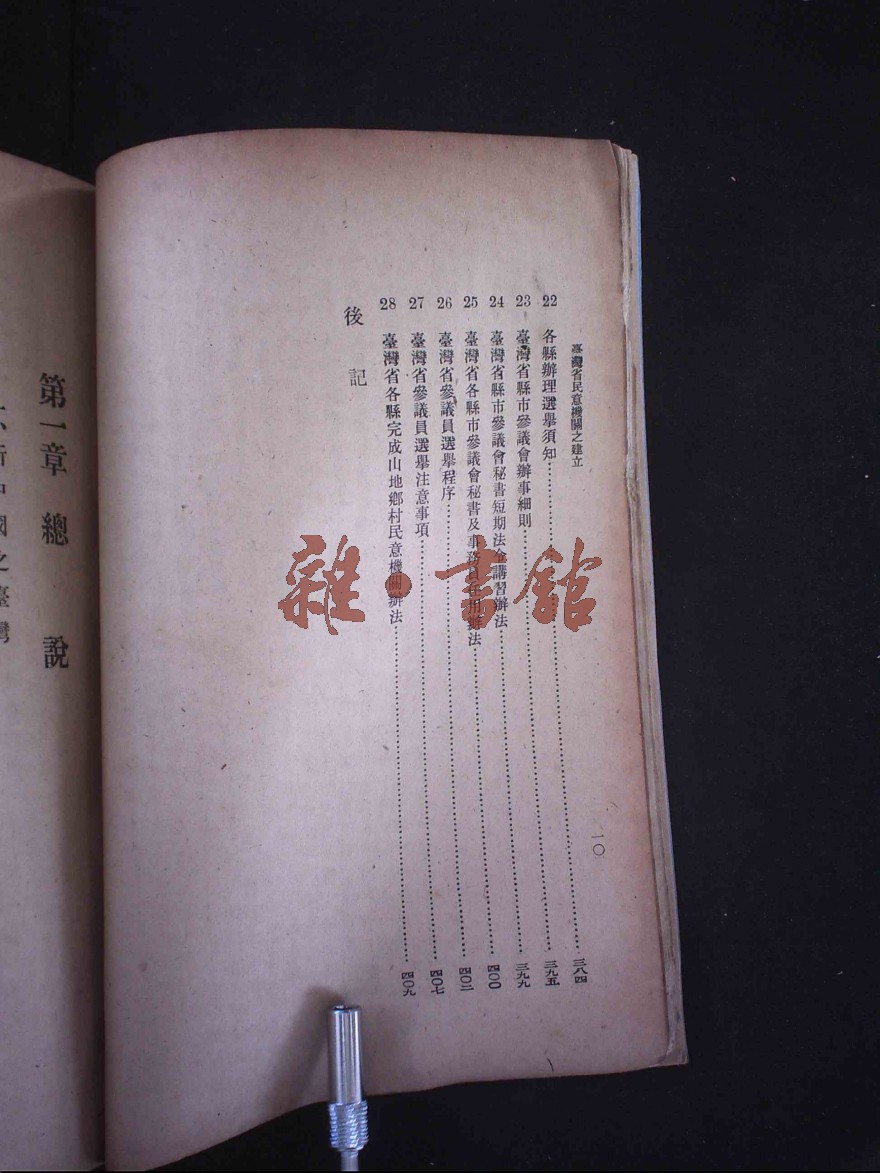 臺灣省民意機關之建立
一〇
22 各縣辦理選舉須知……三八四
23 臺灣省縣市參議會辦事細則……三九五
24 臺灣省縣市參議會秘書短期法令講習辦法……三九九
25 臺灣省各縣市參議會秘書及事務員任用辦法……四〇〇
26 臺灣省參議員選舉程序……四〇二
27 臺灣省參議員選舉注意事項……四〇七
28 臺灣省各縣完成山地鄉村民意機關辦法……四〇九
後記
第一章 總 說
新中國之臺灣
雜·書館